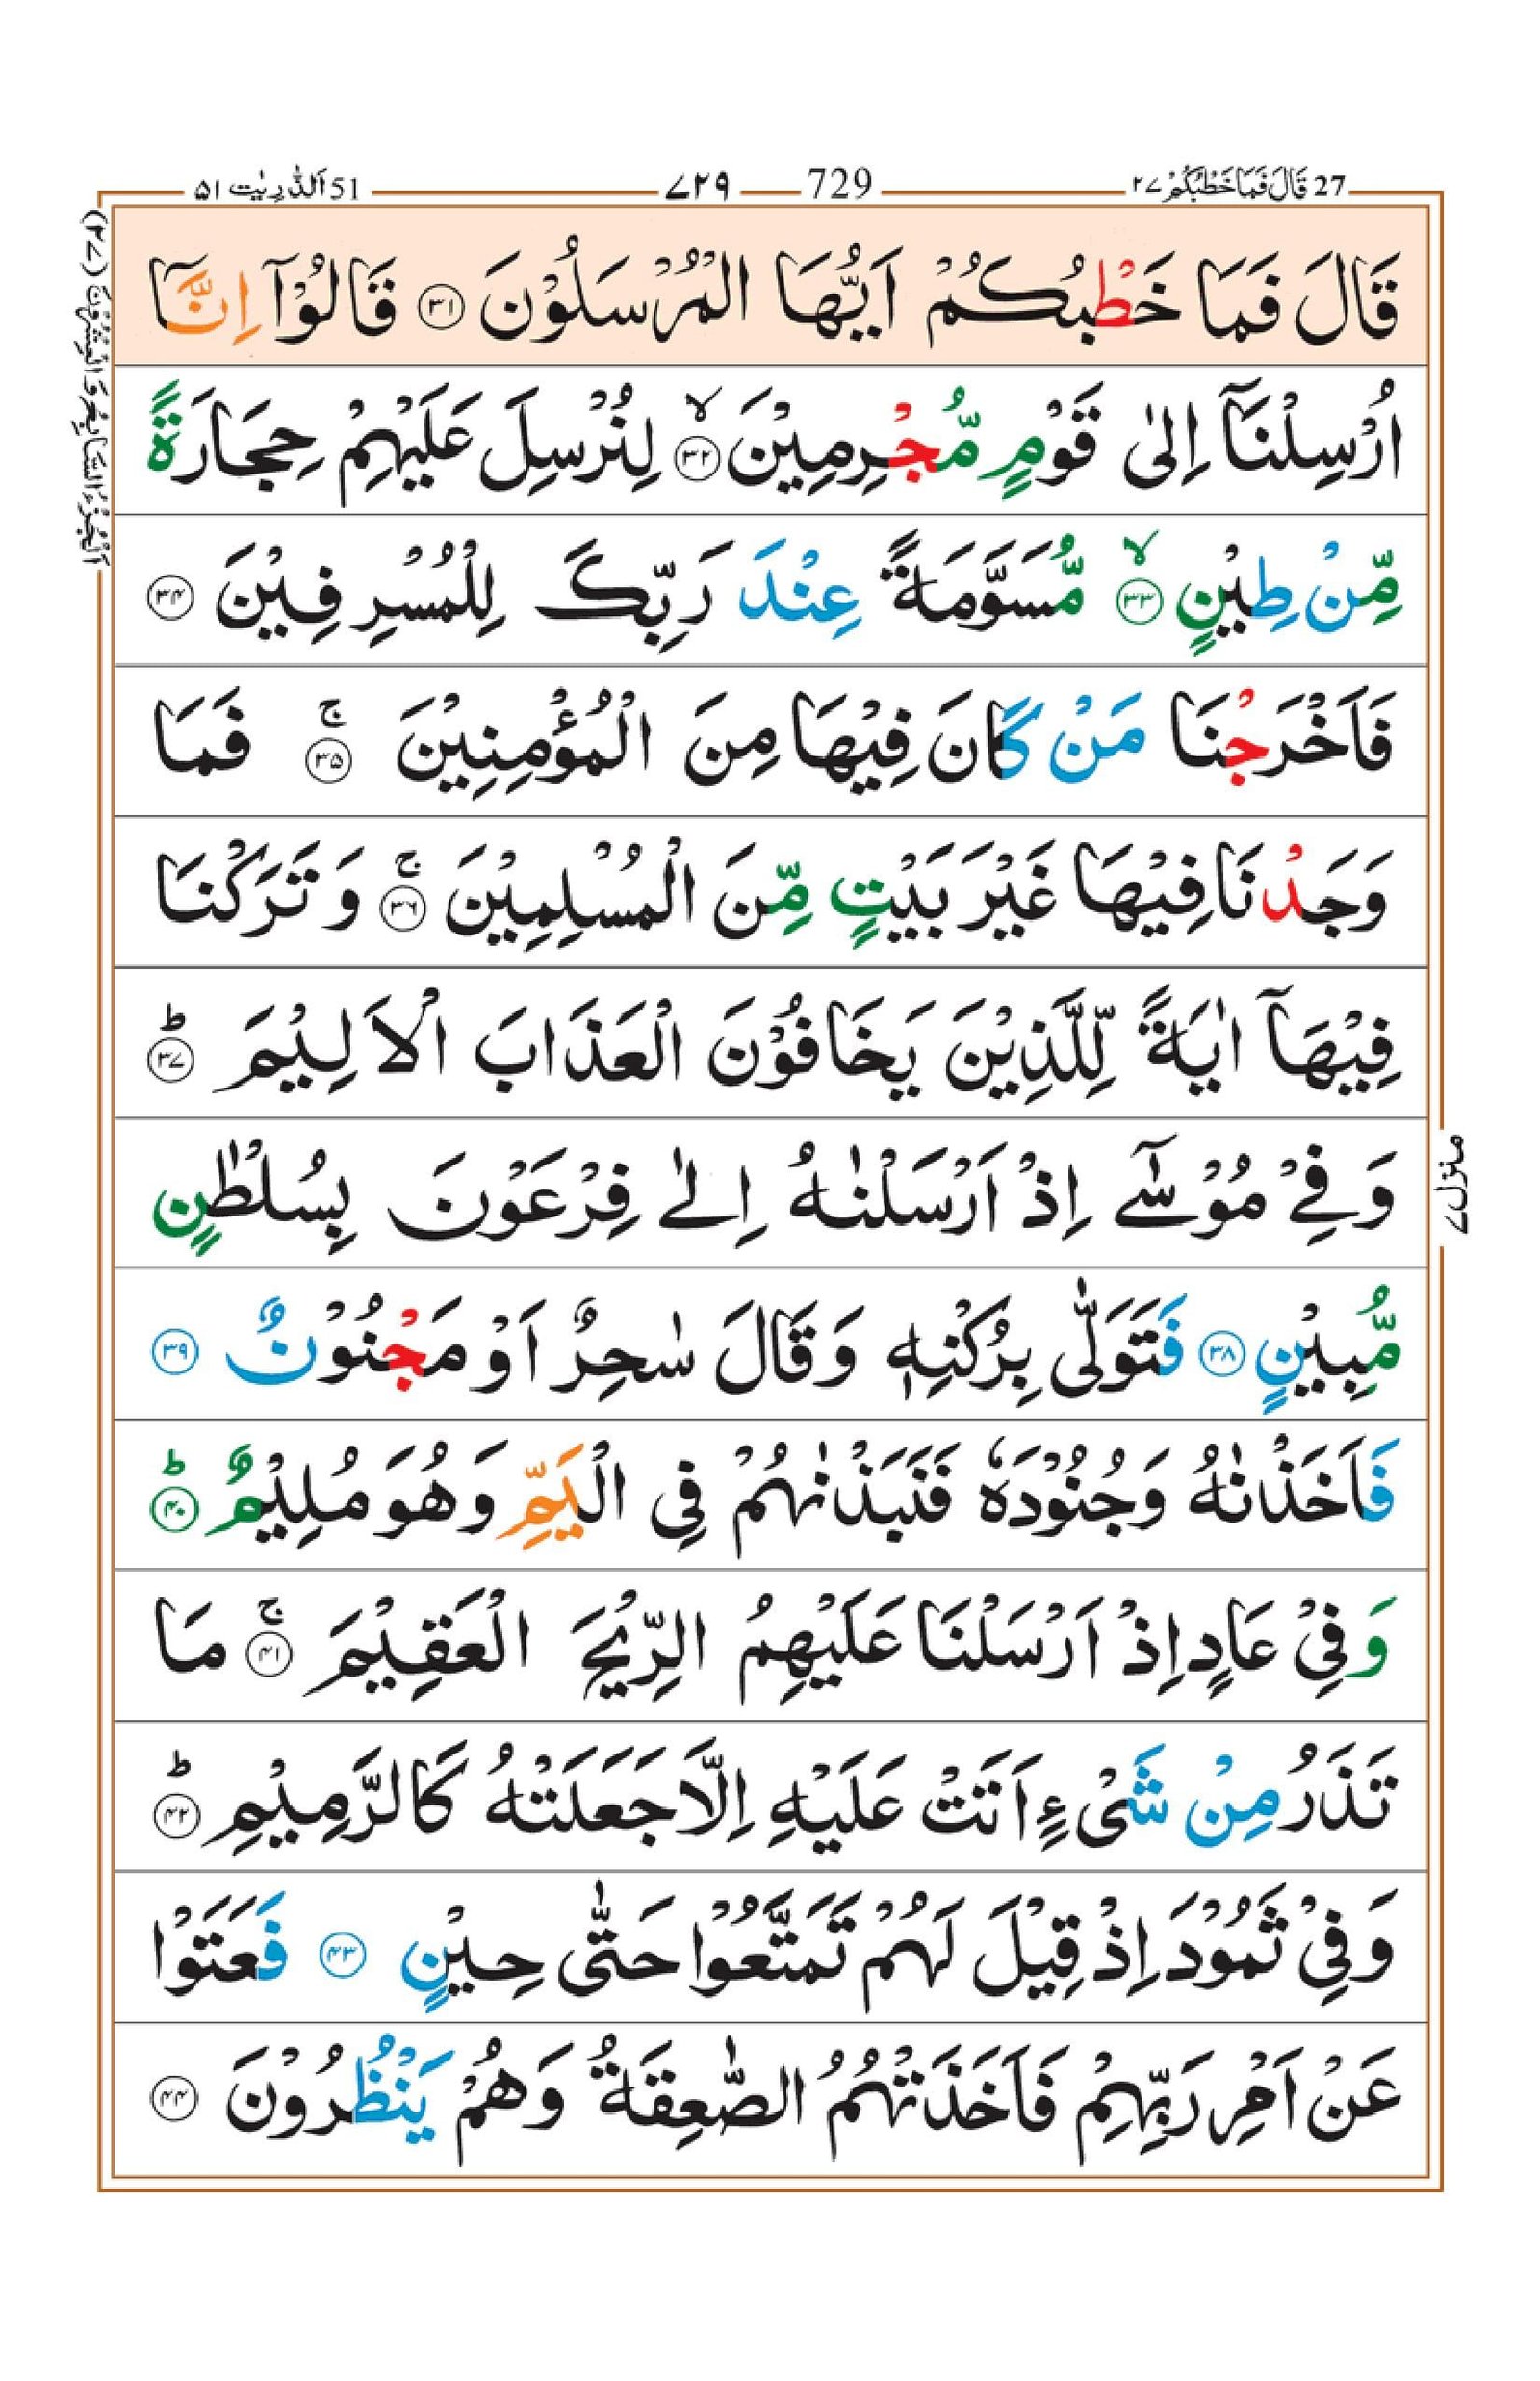 27 قَالَ فَمَا خَطْبُكُمْ ٢٧
729 ٧٢٩
51 اَلذّٰرِيٰت ٥١
اَلْجُزْءُ السَّابِعُ وَالْعِشْرُوْنَ (٢٧)
قَالَ فَمَا خَطْبُكُمْ اَيُّهَا الْمُرْسَلُوْنَ ﴿٣١﴾ قَالُوْۤا اِنَّاۤ
اُرْسِلْنَاۤ اِلٰى قَوْمٍ مُّجْرِمِيْنَۙ ﴿٣٢﴾ لِنُرْسِلَ عَلَيْهِمْ حِجَارَةً
مِّنْ طِيْنٍۙ ﴿٣٣﴾ مُّسَوَّمَةً عِنْدَ رَبِّكَ لِلْمُسْرِفِيْنَ ﴿٣٤﴾
فَاَخْرَجْنَا مَنْ كَانَ فِيْهَا مِنَ الْمُؤْمِنِيْنَۚ ﴿٣٥﴾ فَمَا
وَجَدْنَا فِيْهَا غَيْرَ بَيْتٍ مِّنَ الْمُسْلِمِيْنَۚ ﴿٣٦﴾ وَ تَرَكْنَا
فِيْهَاۤ اٰيَةً لِّلَّذِيْنَ يَخَافُوْنَ الْعَذَابَ الْاَلِيْمَؕ ﴿٣٧﴾
وَفِيْ مُوْسٰۤى اِذْ اَرْسَلْنٰهُ اِلٰى فِرْعَوْنَ بِسُلْطٰنٍ
مُّبِيْنٍ ﴿٣٨﴾ فَتَوَلّٰى بِرُكْنِهٖ وَقَالَ سٰحِرٌ اَوْ مَجْنُوْنٌ ﴿٣٩﴾
فَاَخَذْنٰهُ وَجُنُوْدَهٗ فَنَبَذْنٰهُمْ فِي الْيَمِّ وَهُوَ مُلِيْمٌؕ ﴿٤٠﴾
وَفِيْ عَادٍ اِذْ اَرْسَلْنَا عَلَيْهِمُ الرِّيْحَ الْعَقِيْمَۚ ﴿٤١﴾ مَا
تَذَرُ مِنْ شَيْءٍ اَتَتْ عَلَيْهِ اِلَّا جَعَلَتْهُ كَالرَّمِيْمِؕ ﴿٤٢﴾
وَفِيْ ثَمُوْدَ اِذْ قِيْلَ لَهُمْ تَمَتَّعُوْا حَتّٰى حِيْنٍ ﴿٤٣﴾ فَعَتَوْا
عَنْ اَمْرِ رَبِّهِمْ فَاَخَذَتْهُمُ الصّٰعِقَةُ وَهُمْ يَنْظُرُوْنَ ﴿٤٤﴾
منزل ٧